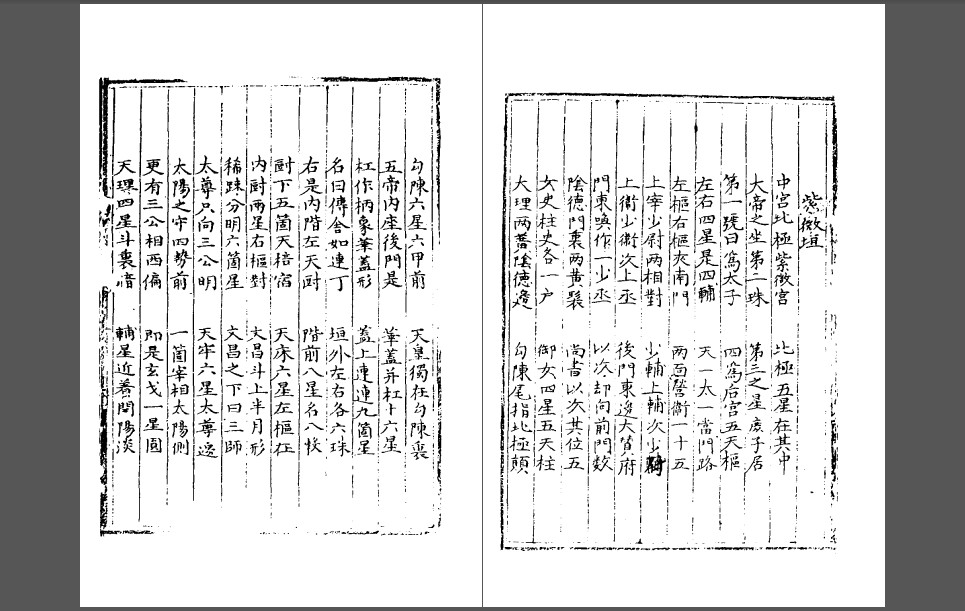 紫微垣
中宮北極紫微宮　北極五星在其中
大帝之坐第二珠　第三之星庶子居
第一號曰爲太子　四爲后宮五天樞
左右四星是四輔　天一太一當門路
左樞右樞夾南門　兩面營衛一十五
上宰少尉兩相對　少輔上輔次少
上衛少衛次上丞　後門東邊大贊府
門東喚作一少丞　以次却向前門數
陰德門裏兩黃聚　尚書以次其位五
女史柱史各一戶　御女四星五天柱
大理兩陰德邊　勾陳尾指北極顛
勾陳六星六甲前　天皇獨在勾陳裏
五帝內座後門是　華蓋并杠十六星
杠作柄象華蓋形　蓋上連連九箇星
名曰傳舍如連丁　垣外左右各六珠
右是內階左天厨　階前八星名八穀
厨下五箇天棓宿　天床六星左樞在
內厨兩星右樞對　文昌斗上半月形
稀踈分明六箇星　文昌之下曰三師
太尊只向三公明　天牢六星太尊邊
太陽之守四勢前　一箇宰相太陽側
更有三公相西偏　即是玄戈一星圓
天理四星斗裏暗　輔星近着開陽淡